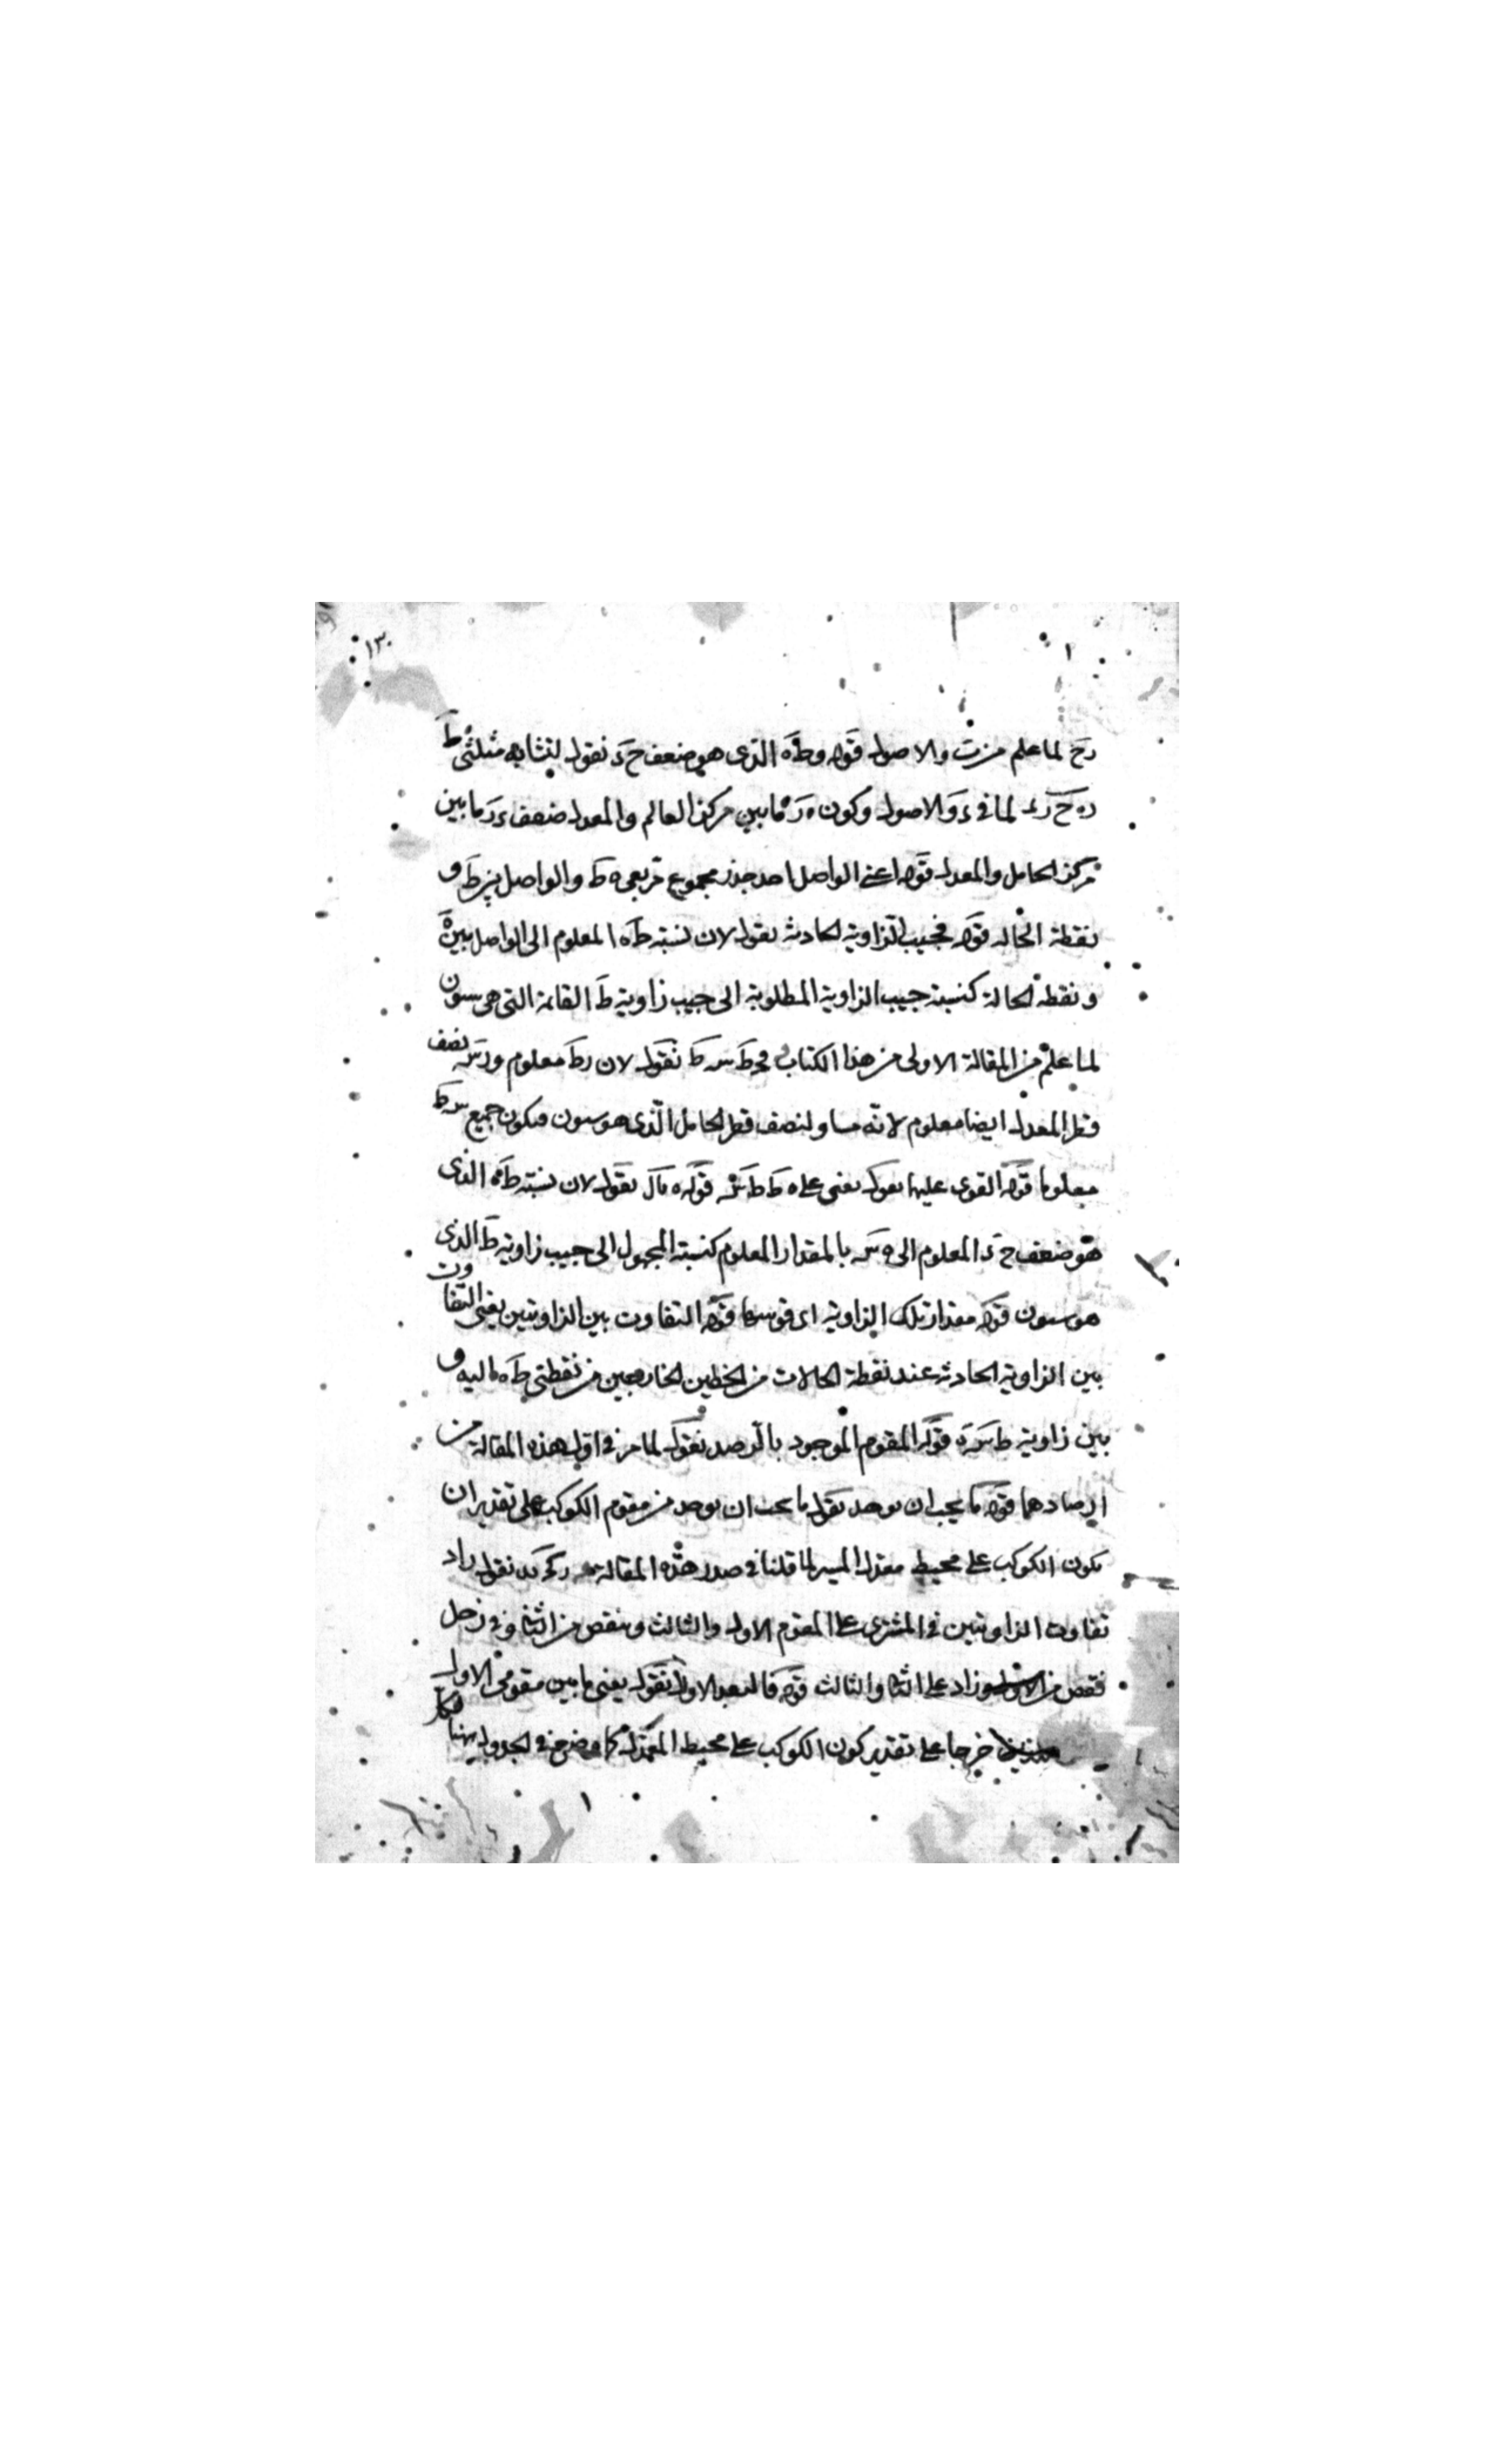 ١٣٠
رح لما علم من ت والاصول قوله وطه الذى هو ضعف ح د نقول لتشابه مثلثى ط
ره ح ر د لما فى و الاصول وكون ه ر ما بين مركز العالم والمعدل ضعف د ر ما بين
مركز الحامل والمعدل قوله اعنى الواصل احد جذر مجموع مربعى ه ط والواصل بين ط و
نقطة الحاله قوله فجيب الزاوية الحادثه نقول لان نسبة ط ه المعلوم الى الواصل بين ه
ونقطه الحالة كنسبة جيب الزاوية المطلوبة الى جيب زاوية ط القائمة التى هى ستون
لما علم من المقالة الاولى من هذا الكتاب وط س ط نقول لان ر ط معلوم ور س نصف
قطر المعدل ايضا معلوم لانه مساو لنصف قطر الحامل الذى هو ستون فيكون جميع س ط
معلوما قوله القوى عليها نقول يعنى على ه ط ط س قوله ه نقول لان نسبة ط ه الذى
هو ضعف ح د المعلوم الى ه س بالمقدار المعلوم كنسبة المجهول الى جيب زاوية ط الذى
هو ستون قوله مقدار تلك الزاوية اى قوسها قوله التفاوت بين الزاويتين يعنى التفاوت
بين الزاوية الحادثه عند نقطة الحالات من الخطين الخارجين من نقطتى ط ه اليه و
بين زاوية ط س ه قوله المقوم الموجود بالرصد نقول لما مر فى اول هذه المقالة من
ارصادهما قوله ما يجب ان يوجد نقول ما يجب ان يوجد من مقوم الكوكب على تقدير ان
يكون الكوكب على محيط معدل المسير لما قلنا فى صدر هذه المقالة نقول زاد
تفاوت الزاويتين فى المشترى على المقوم الاول والثالث وينقص من الثانى وفى زحل
نقص من الاول وزاد على الثانى والثالث قوله فالبعد الاول نقول يعنى ما بين مقومى الاول
خرجا على تقدير كون الكوكب على محيط المعدل كما وضع فى الجدول